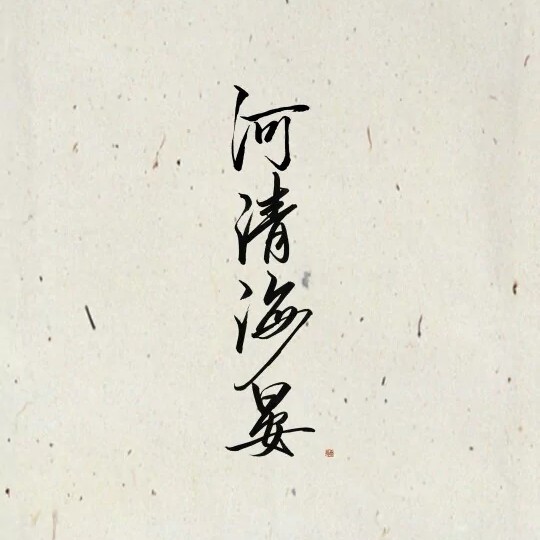 河清海晏